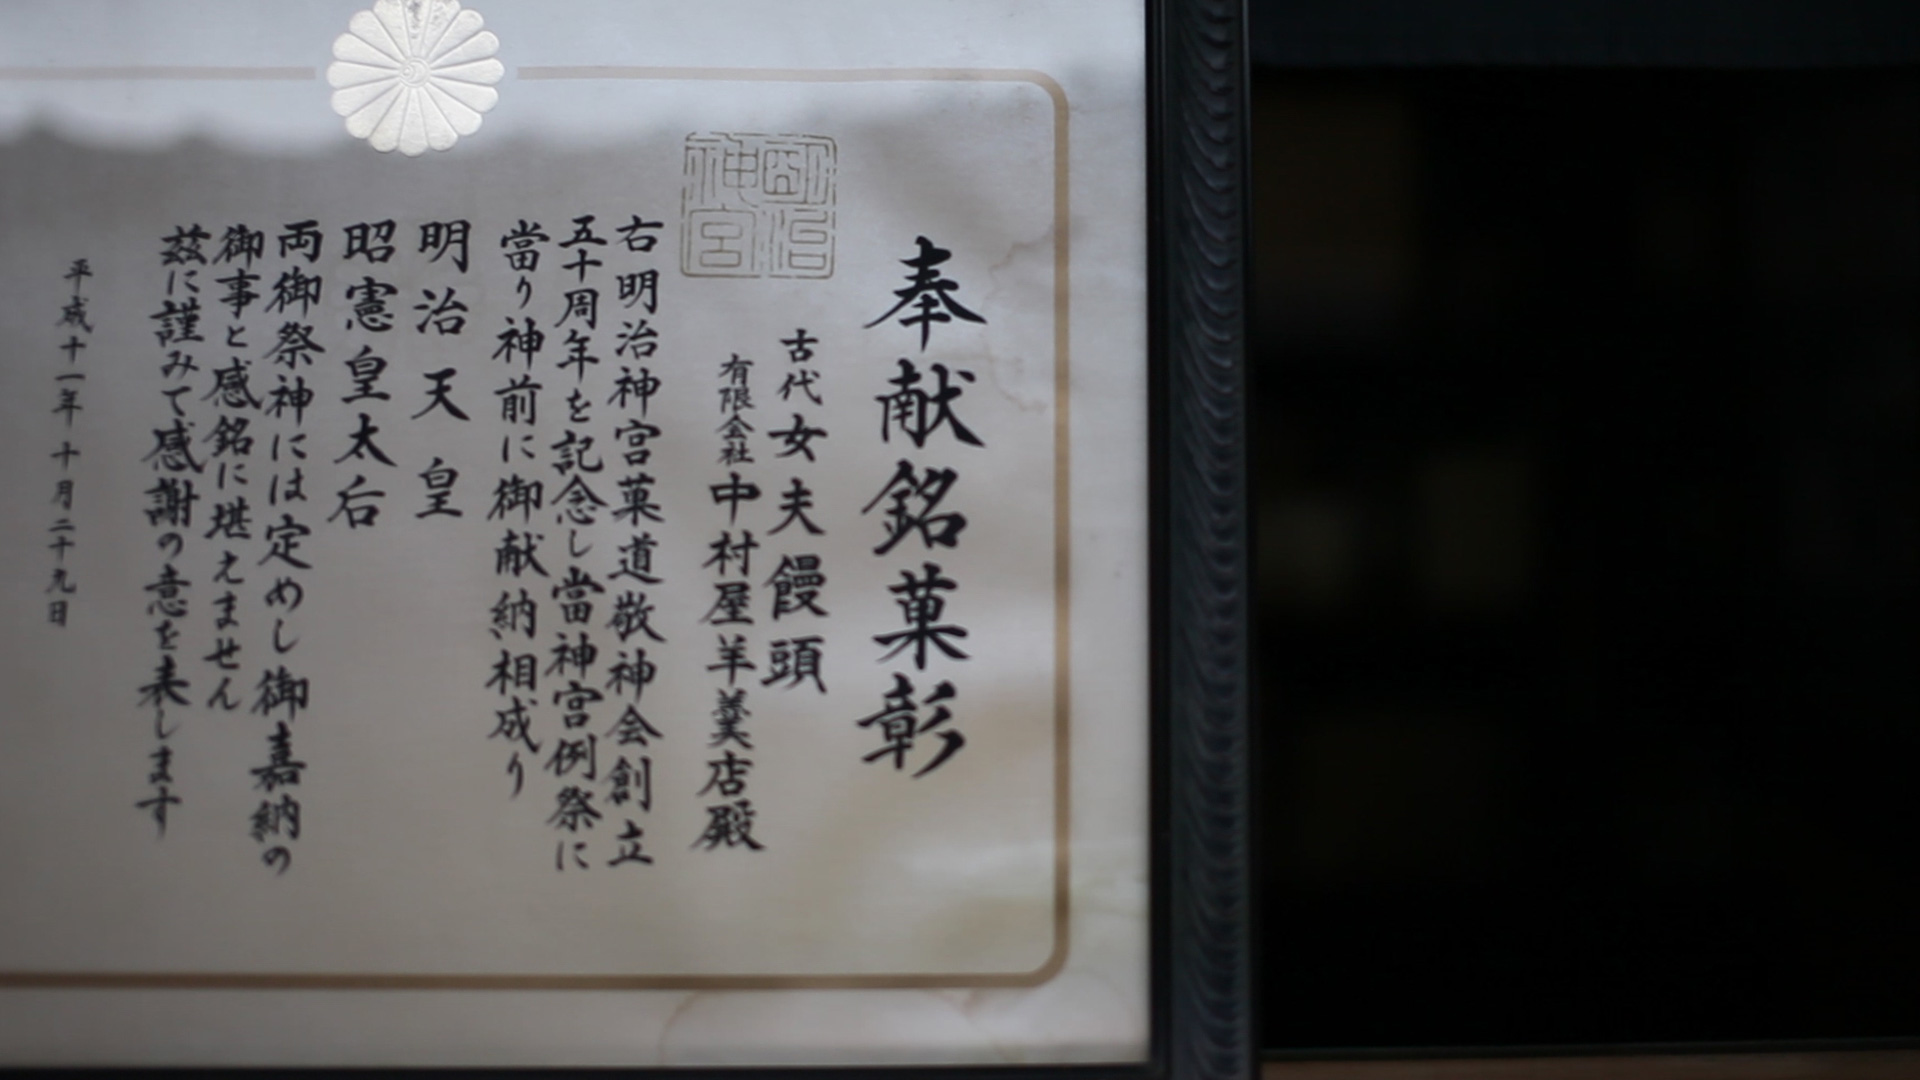 奉献銘菓彰
明治
神宮
古代女夫饅頭
有限会社中村屋羊羹店殿
右明治神宮菓道敬神会創立
五十周年を記念し當神宮例祭に
當り神前に御献納相成り
明治天皇
昭憲皇太后
両御祭神には定めし御嘉納の
御事と感銘に堪えません
茲に謹みて感謝の意を表します
平成十一年十月二十九日